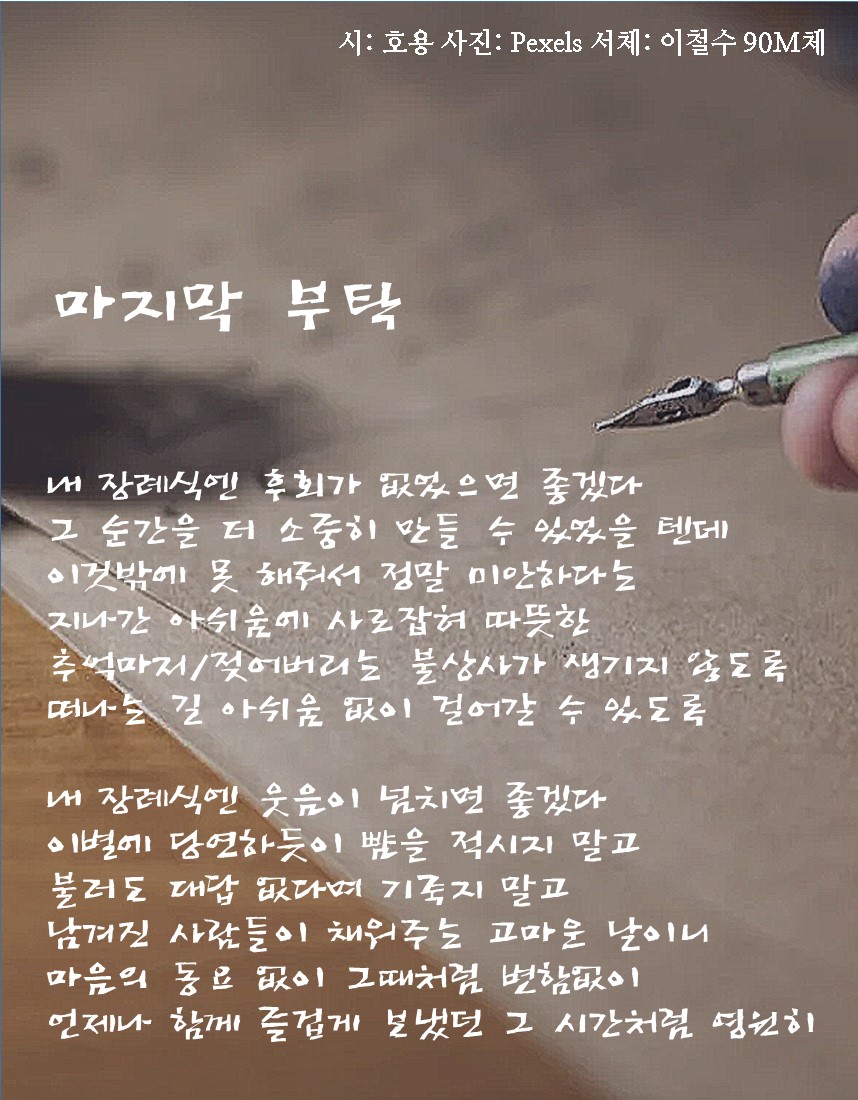 시: 호용 사진: Pexels 서체: 이철수 90M체
마지막 부탁
내 장례식엔 후회가 없었으면 좋겠다
그 순간을 더 소중히 만들 수 있었을 텐데
이것밖에 못 해줘서 정말 미안하다는
지나간 아쉬움에 사로잡혀 따뜻한
추억마저/젖어버리는 불상사가 생기지 않도록
떠나는 길 아쉬움 없이 걸어갈 수 있도록
내 장례식엔 웃음이 넘치면 좋겠다
이별에 당연하듯이 뺨을 적시지 말고
불러도 대답 없다며 기죽지 말고
남겨진 사람들이 채워주는 고마운 날이니
마음의 동요 없이 그때처럼 변함없이
언제나 함께 즐겁게 보냈던 그 시간처럼 영원히